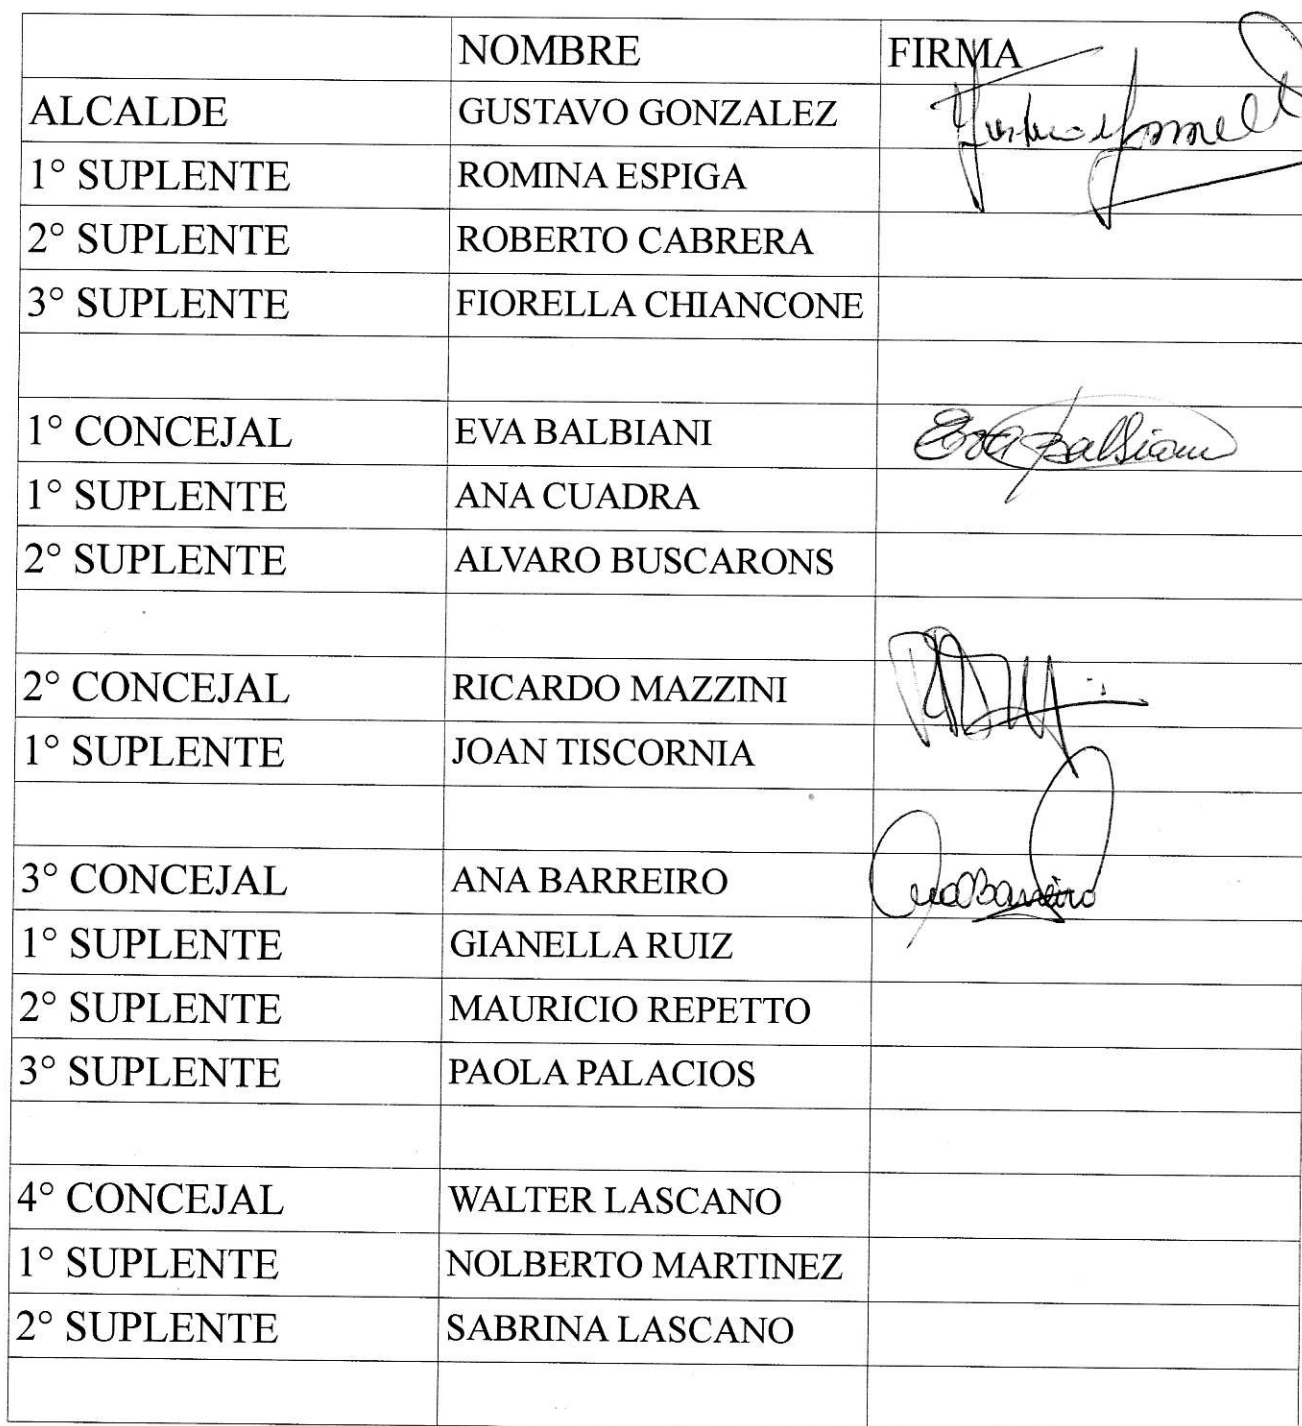 NOMBRE FIRMA
ALCALDE GUSTAVO GONZALEZ Gustavo Gonzalez
1° SUPLENTE ROMINA ESPIGA
2° SUPLENTE ROBERTO CABRERA
3° SUPLENTE FIORELLA CHIANCONE
1° CONCEJAL EVA BALBIANI Eva Balbiani
1° SUPLENTE ANA CUADRA
2° SUPLENTE ALVARO BUSCARONS
2° CONCEJAL RICARDO MAZZINI
1° SUPLENTE JOAN TISCORNIA
3° CONCEJAL ANA BARREIRO Ana Barreiro
1° SUPLENTE GIANELLA RUIZ
2° SUPLENTE MAURICIO REPETTO
3° SUPLENTE PAOLA PALACIOS
4° CONCEJAL WALTER LASCANO
1° SUPLENTE NOLBERTO MARTINEZ
2° SUPLENTE SABRINA LASCANO